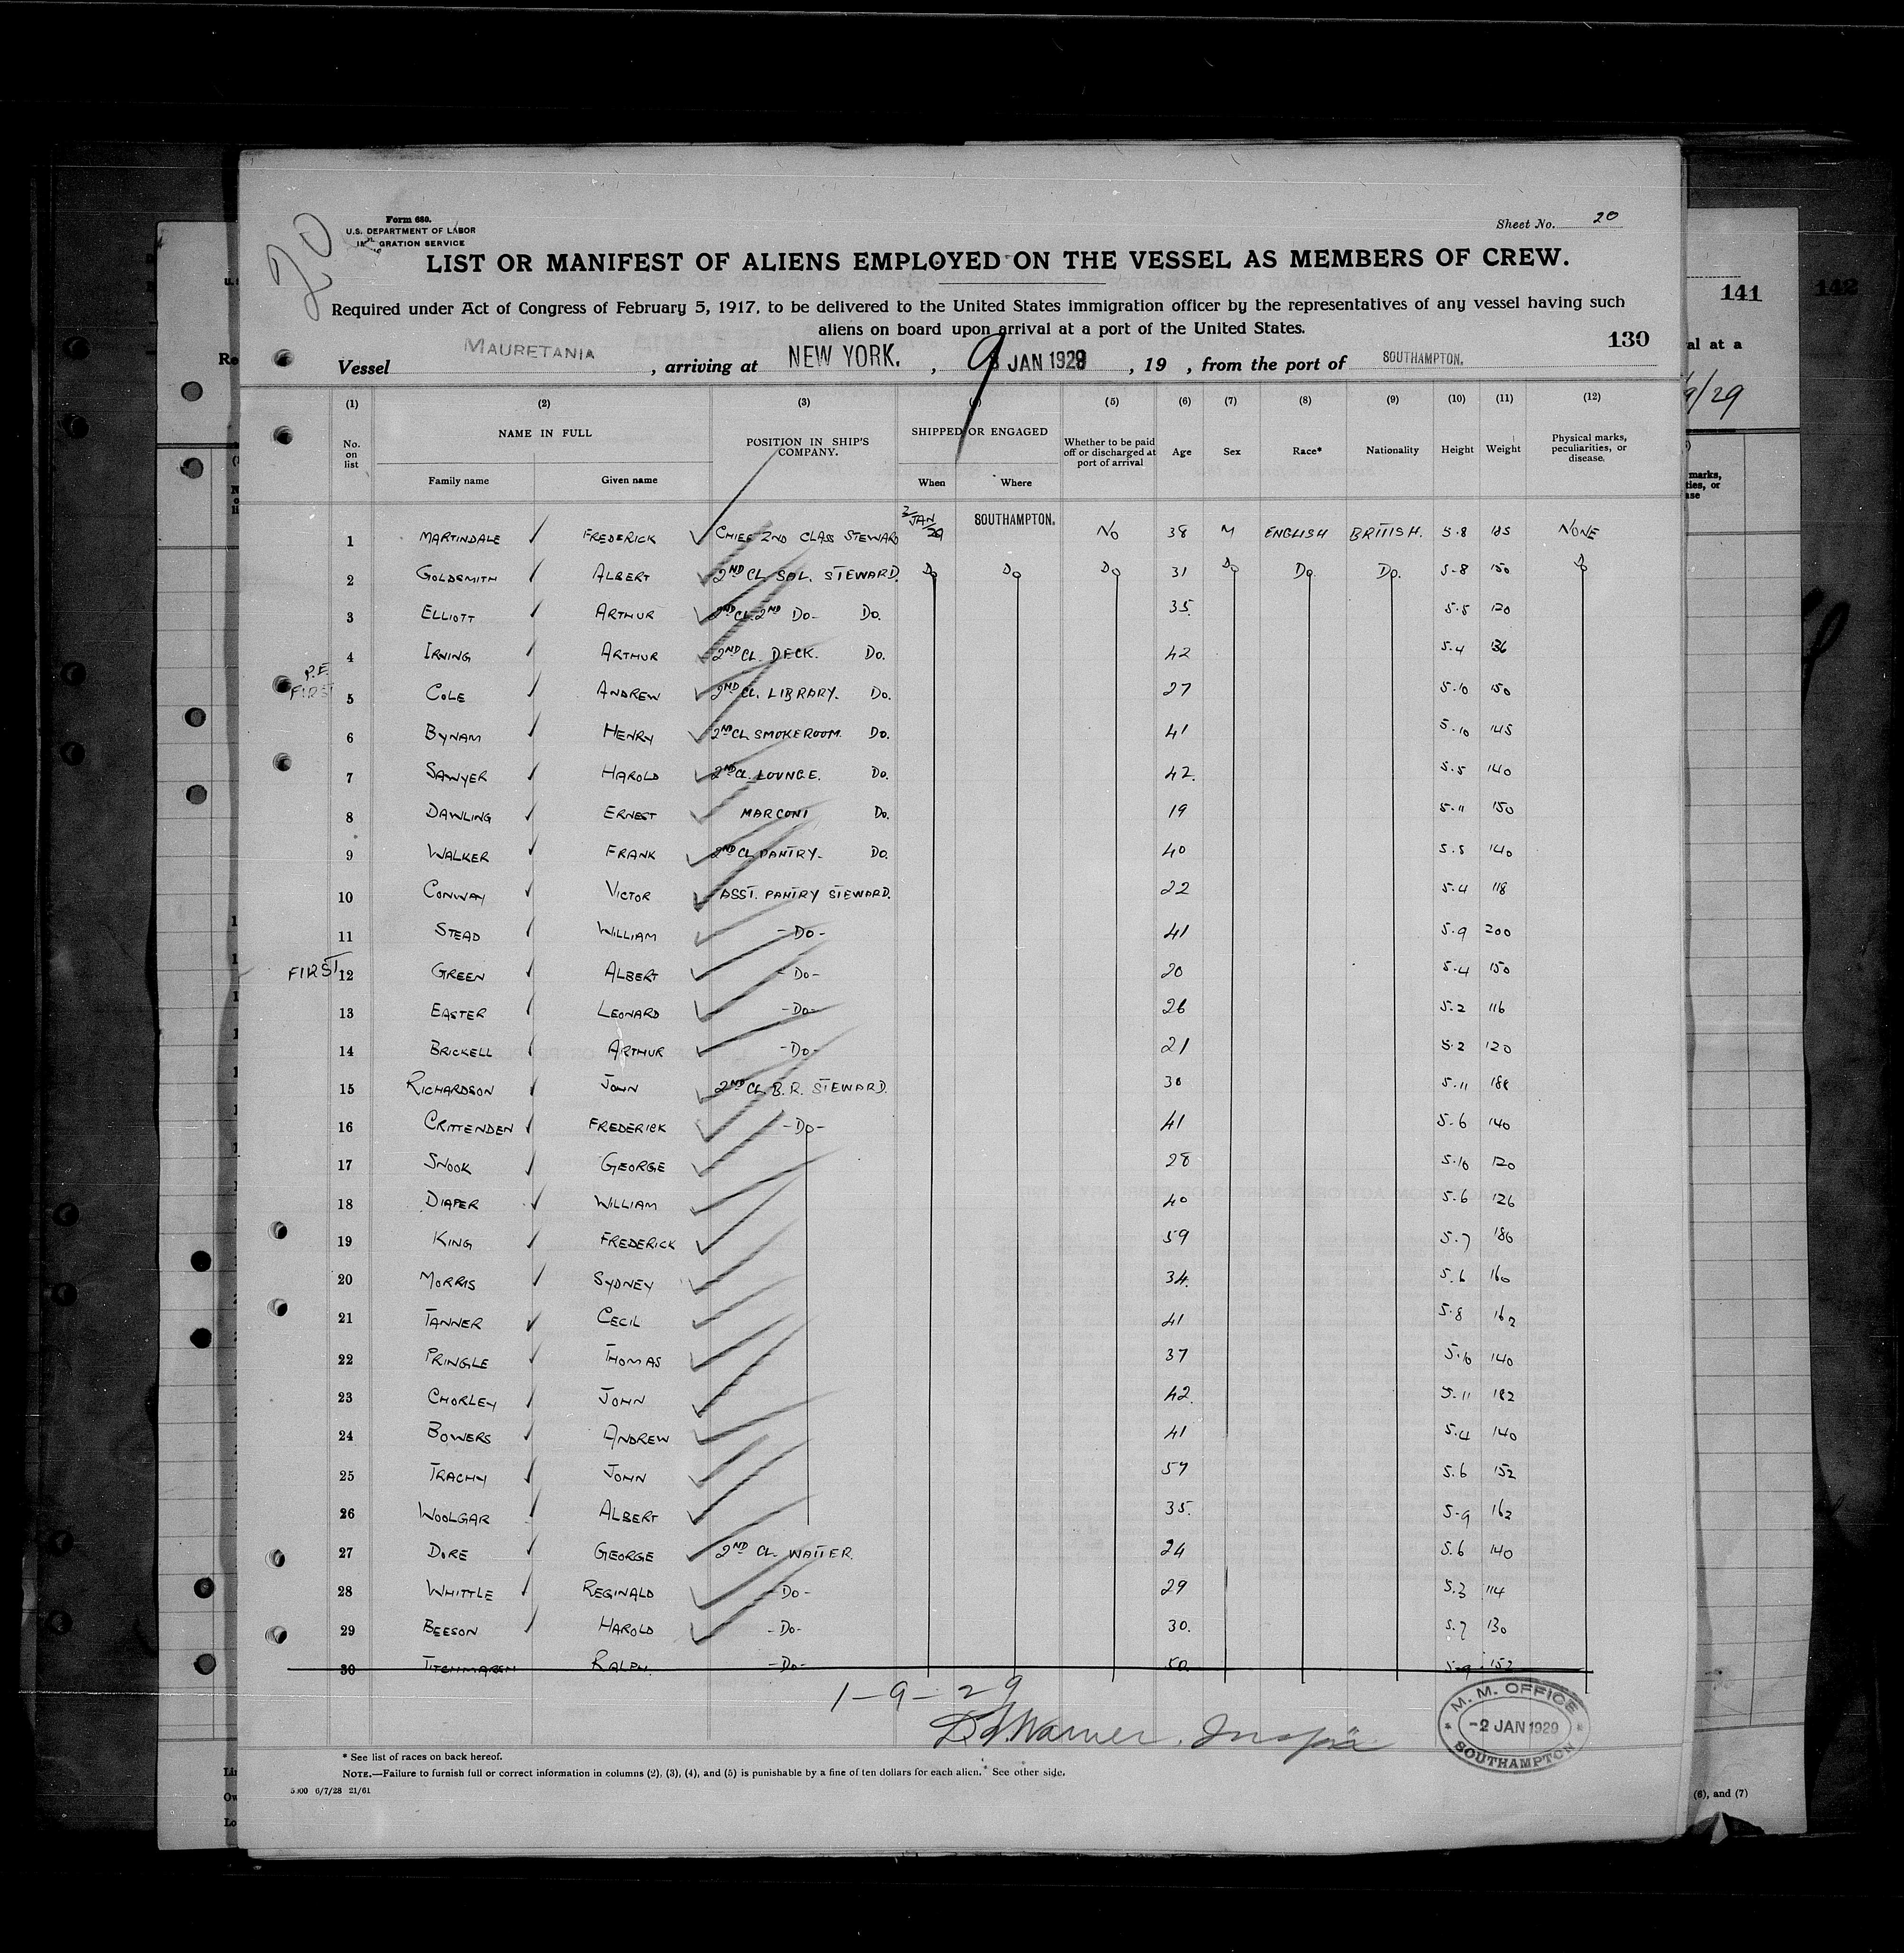 20
Form 680.
U.S. DEPARTMENT OF LABOR
GRATION SERVICE
Sheet No. 20
LIST OR MANIFEST OF ALIENS EMPLOYED ON THE VESSEL AS MEMBERS OF CREW.
Required under Act of Congress of February 5, 1917, to be delivered to the United States immigration officer by the representatives of any vessel having such
aliens on board upon arrival at a port of the United States.
130
141
142
Vessel MAURETANIA, arriving at NEW YORK., 9 JAN 1929, 19 , from the port of SOUTHAMPTON.
(1) (2) (3) (5) (6) (7) (8) (9) (10) (11) (12)
No. on list NAME IN FULL POSITION IN SHIP'S COMPANY. SHIPPED OR ENGAGED Whether to be paid off or discharged at port of arrival Age Sex Race* Nationality Height Weight Physical marks, peculiarities, or disease.
Family name Given name When Where
1 MARTINDALE FREDERICK CHIEF 2ND CLASS STEWARD 2/JAN/29 SOUTHAMPTON. NO 38 M ENGLISH BRITISH. 5.8 185 NONE
2 GOLDSMITH ALBERT 2ND CL. SAL. STEWARD. DO DO DO 31 DO DO DO. 5.8 150 DO
3 ELLIOTT ARTHUR 2ND CL. 2ND DO- DO. 35. 5.5 120
4 IRVING ARTHUR 2ND CL. DECK. DO. 42 5.4 136
P.E. FIRST 5 COLE ANDREW 2ND CL. LIBRARY. DO. 27 5.10 150
6 BYNAM HENRY 2ND CL SMOKEROOM. DO. 41 5.10 145
7 SAWYER HAROLD 2ND CL. LOUNGE. DO. 42. 5.5 140
8 DAWLING ERNEST MARCONI DO. 19 5.11 150
9 WALKER FRANK 2ND CL PANTRY- DO. 40 5.5 140
10 CONWAY VICTOR ASST. PANTRY STEWARD. 22 5.4 118
11 STEAD WILLIAM -DO- 41 5.9 200
FIRST 12 GREEN ALBERT -DO- 20 5.4 150
13 EASTER LEONARD -DO- 26 5.2 116
14 BRICKELL ARTHUR -DO- 21 5.2 120
15 RICHARDSON JOHN 2ND CL. B. R. STEWARD. 30 5.11 188
16 CRITTENDEN FREDERICK -DO- 41 5.6 140
17 SNOOK GEORGE 28 5.10 120
18 DIAPER WILLIAM 40 5.6 126
19 KING FREDERICK 59 5.7 186
20 MORRIS SYDNEY 34. 5.6 160
21 TANNER CECIL 41 5.8 162
22 PRINGLE THOMAS 37 5.6 140
23 CHORLEY JOHN 42. 5.11 182
24 BOWERS ANDREW 41 5.4 140
25 TRACHY JOHN 57 5.6 152
26 WOOLGAR ALBERT 35. 5.9 162
27 DORE GEORGE 2ND CL. WAITER. 24 5.6 140
28 WHITTLE REGINALD -DO- 29 5.3 114
29 BEESON HAROLD -DO- 30. 5.7 130
30 TITCHMARSH RALPH. -DO- 50. 5.9 152
1-9-29
Warner.
M. M. OFFICE
-2 JAN 1929
SOUTHAMPTON
* See list of races on back hereof.
NOTE.—Failure to furnish full or correct information in columns (2), (3), (4), and (5) is punishable by a fine of ten dollars for each alien. See other side.
6/7/28 21/61
(6), and (7)